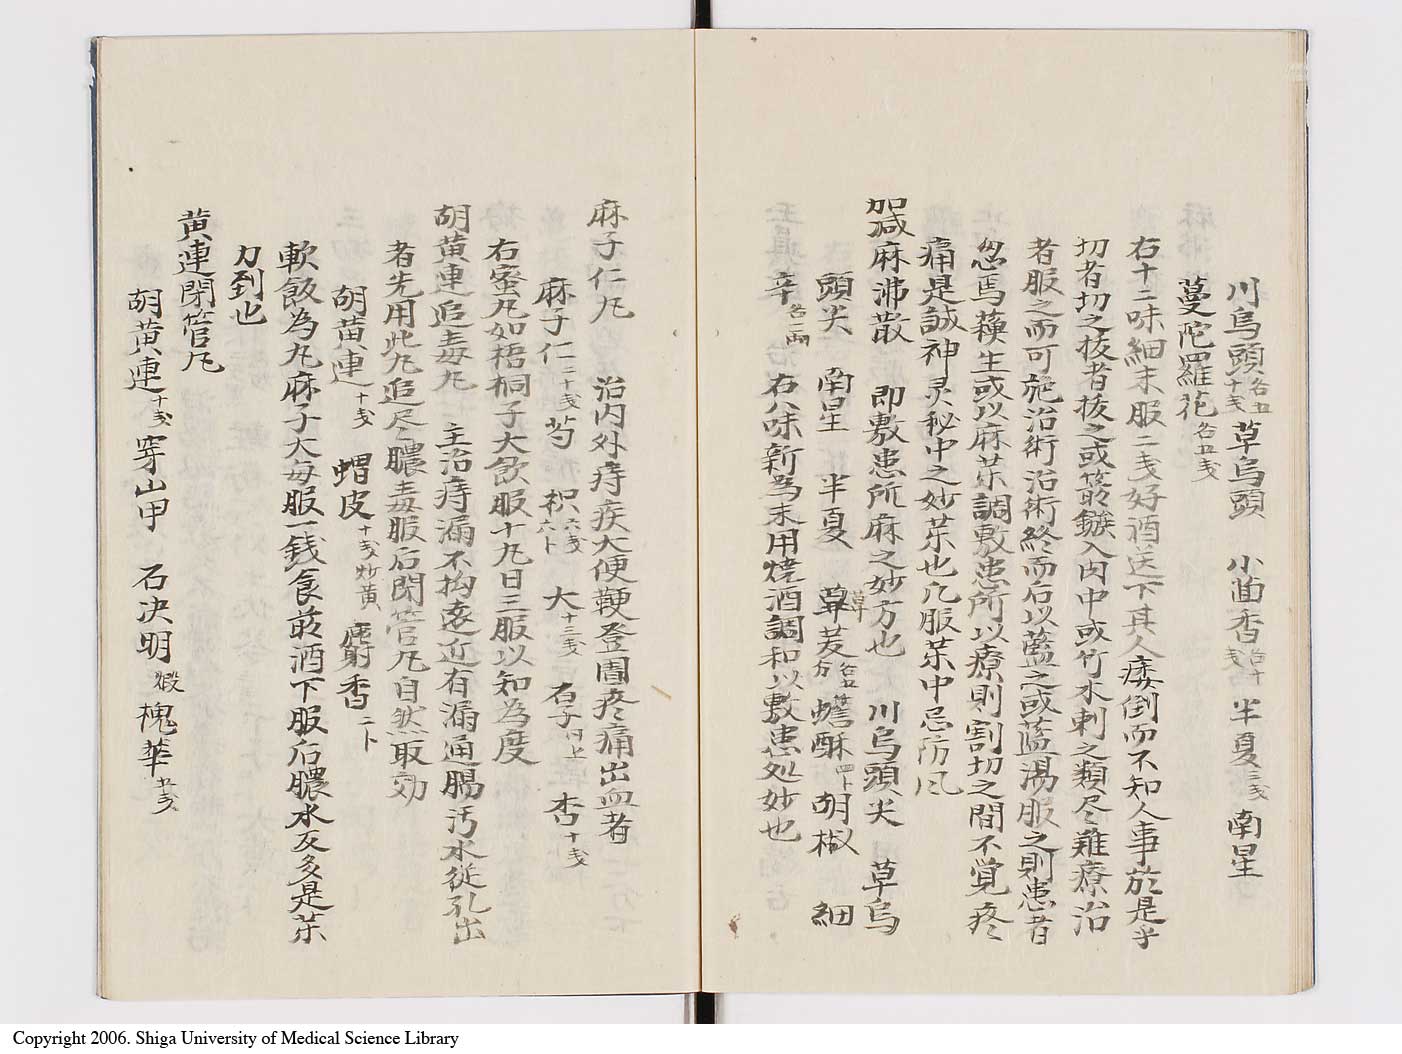 川烏頭各五十戔草烏頭 小茴香各十戔半夏三戔南星
蔓陀羅花各五戔
右十二味細末服二戔好酒送下其人痿倒而不知人事於是乎
切者切之抜者抜之或箭鏃入肉中或竹木刺之類尽難療治
者服之而可施治術治術終而后以藍之或藍湯服之則患者
忽馬蘓生或以麻茶調敷患所以療則割切之間不覚疼
痛是誠神灵秘中之妙茶也凡服茶中忌防風
加减麻沸散 即敷患所麻之妙方也 川烏頭尖 草烏
頭尖 南星 半夏 蓽茇各五分蟾酥四卜胡椒 細
辛各二両 右八味新為末用焼酒調和以敷患処妙也
麻子仁凡 治内外痔疾大便鞕登圊疼痛出血者
麻子仁二十戔芍 枳六戔六卜 大十三戔 右子同上 杏十戔
右蜜凡如梧桐子大飲服十九日三服以知為度
胡黄連追毒凡 主治痔漏不拘遠近有漏通腸汚水従孔出
者先用此凡追尽膿毒服后閉管凡自然取効
胡黄連十戔 蝟皮十戔炒黄 麝香二卜
軟飯為凡麻子大毎服一銭食前酒下服后膿水反多是茶
力到也
黄連閉管凡
胡黄連十戔穿山甲 石决明煅槐華五戔
Copyright 2006. Shiga University of Medical Science Library